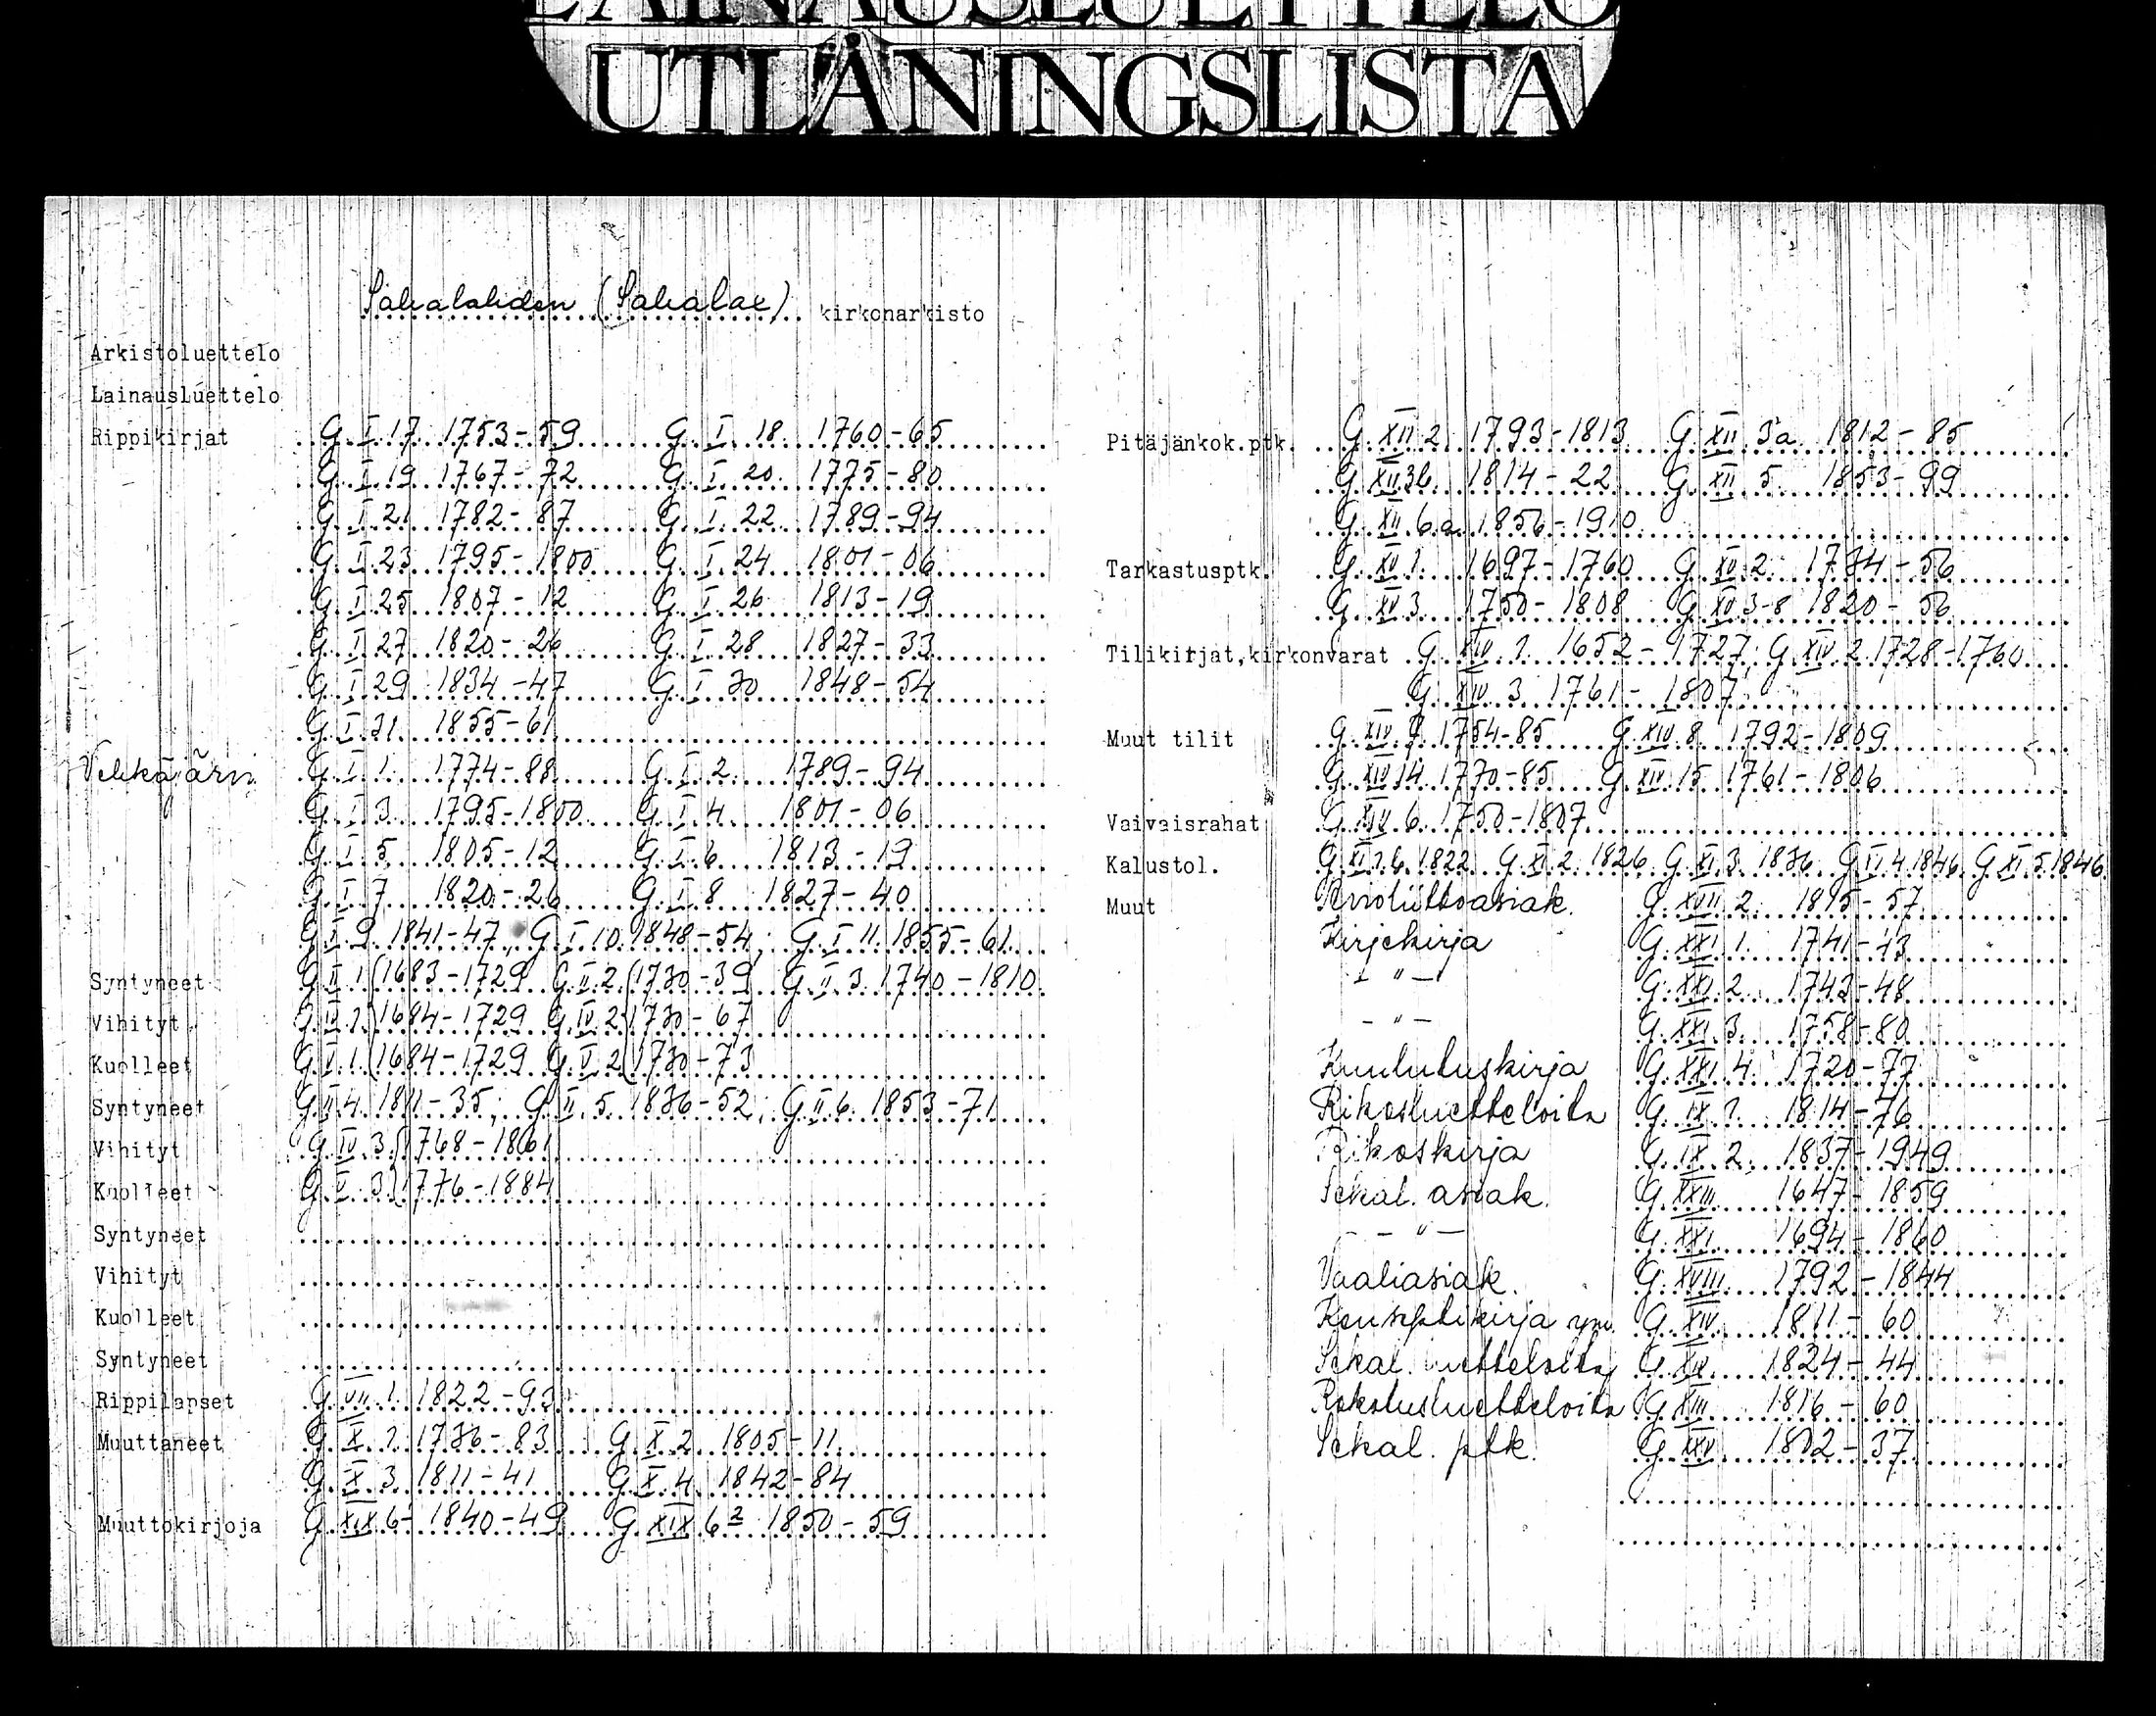 LAINAUSLUETTELO
UTLÅNINGSLISTA
Sahalahden (Sahalax) kirkonarkisto
Arkistoluettelo
Lainausluettelo
Rippikirjat G I 17 1753-59 G I 18 1760-65
G I 19 1767-72 G I 20 1775-80
G I 21 1782-87 G I 22 1789-94
G I 23 1795-1800 G I 24 1801-06
G I 25 1807-12 G I 26 1813-19
G I 27 1820-26 G I 28 1827-33
G I 29 1834-47 G I 30 1848-54
G I 31 1855-61
G I 1 1774-88 G I 2 1789-94
G I 3 1795-1800 G I 4 1801-06
G I 5 1805-12 G I 6 1813-19
G I 7 1820-26 G I 8 1827-40
G I 9 1841-47, G I 10 1848-54, G I 11 1855-61
Syntyneet G II 1 1683-1729 G II 2 1730-39 G II 3 1740-1810
Vihityt G IV 1 1684-1729 G IV 2 1730-67
Kuolleet G V 1 1684-1729 G V 2 1730-73
Syntyneet G II 4 1811-35, G II 5 1836-52, G II 6 1853-71
Vihityt G IV 3 1768-1861
Kuolleet G V 3 1776-1884
Syntyneet
Vihityt
Kuolleet
Syntyneet
Rippilapset G VII 1 1822-93
Muuttaneet G X 1 1786-83 G X 2 1805-11
G X 3 1811-41 G X 4 1842-84
Muuttokirjoja G XIX 6 1840-49 G XIX 6 2 1850-59
Pitäjänkok.ptk. G XII 2 1793-1813 G XII 3a 1812-85
G XII 3b 1814-22 G XII 5 1853-99
G XII 6a 1856-1910
Tarkastusptk. G XV 1 1697-1760 G XV 2 1734-56
G XV 3 1750-1808 G XV 3-8 1820-56
Tilikirjat,kirkonvarat G XIV 1 1652-1727, G XIV 2 1728-1760
G XIV 3 1761-1807
Muut tilit G XIV 7 1754-85 G XIV 8 1792-1809
G XIV 14 1770-85 G XIV 15 1761-1806
Vaivaisrahat G XIV 6 1750-1807
Kalustol. G XI 1b 1822 G XI 2 1826 G XI 3 1836 G XI 4 1846 G XI 5 1846
Muut Avioliittoasiak. G XVII 2 1815-57
Kirjekirja G XXI 1 1741-43
- " - G XXI 2 1743-48
- " - G XXI 3 1758-80
Kuulutuskirja G XXI 4 1720-77
Rikosluetteloita G IX 1 1814-76
Rikoskirja G IX 2 1837-1949
Sekal. asiak. G XXIII 1647-1859
- " - G XXI 1694-1860
Vaaliasiak. G XVIII 1792-1844
Konseptikirja ym. G XIV 1811-60
Sekal. luetteloita G XV 1824-44
Rokotusluetteloita G XIII 1816-60
Sekal. ptk. G XXV 1802-37